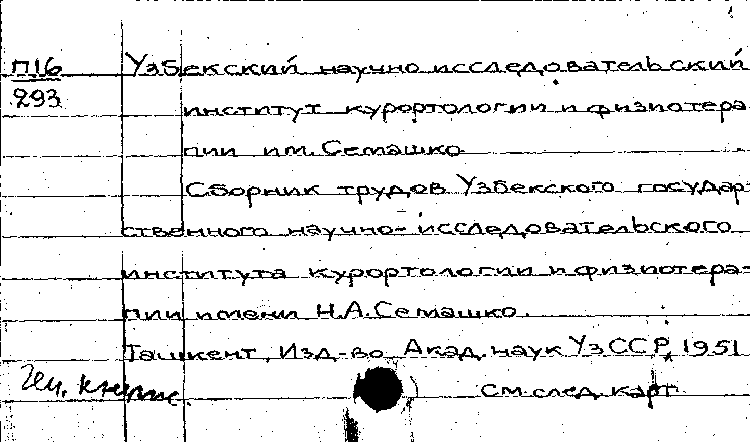 П16
293
Узбекский научно исследовательский
институт курортологии и физиотера
пии им. Семашко
Сборник трудов Узбекского государ-
ственного научно-исследовательского
института курортологии и физиотера-
пии имени Н.А. Семашко.
Ташкент, Изд-во Акад. наук УзССР, 1951
см. след. карт.